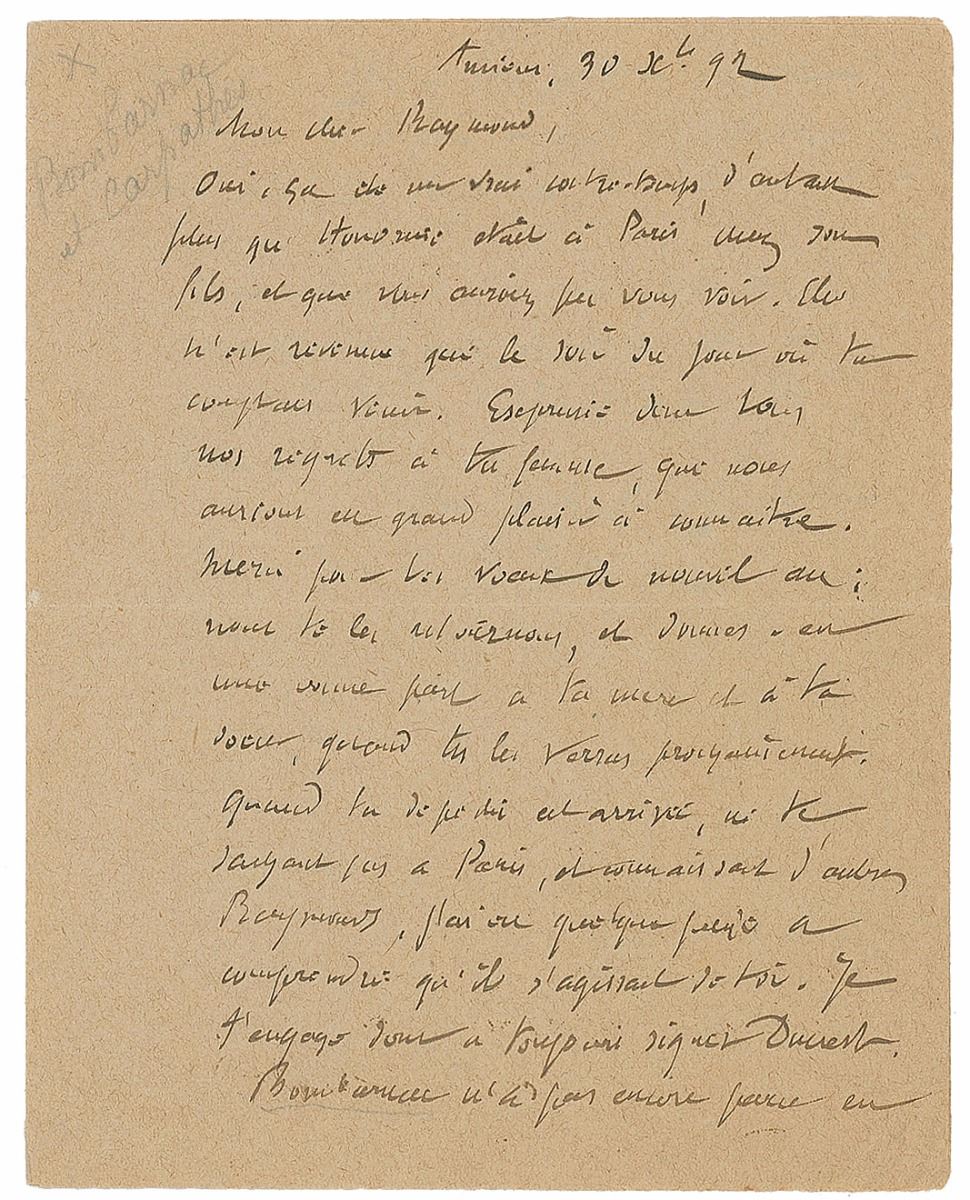 Bombarnac
et Carpathes
Amiens, 30 Xbre 92
Mon cher Raymond,
Oui, ça été un vrai contre-temps, d'autant
plus qu'Honorine etait à Paris chez son
fils, et que vous auriez pu vous voir. Elle
n'est revenue que le soir du jour où tu
comptais venir. Exprime donc tous
nos regrets à ta femme, que nous
aurions eu grand plaisir à connaitre.
Merci pour tes voeux de nouvel an ;
nous te les retournons, et donnes-en
une bonne part a ta mere et à ta
soeur, quand tu les verras prochainement.
Quand ta dépêche est arrivée, ne te
sachant pas a Paris, et connaissant d'autres
Raymonds, j'ai eu quelque peine a
comprendre qu'il s'agissait de toi. Je
t'engage donc a toujours signer Ducrest.
Bombarnac n'a pas encore paru en